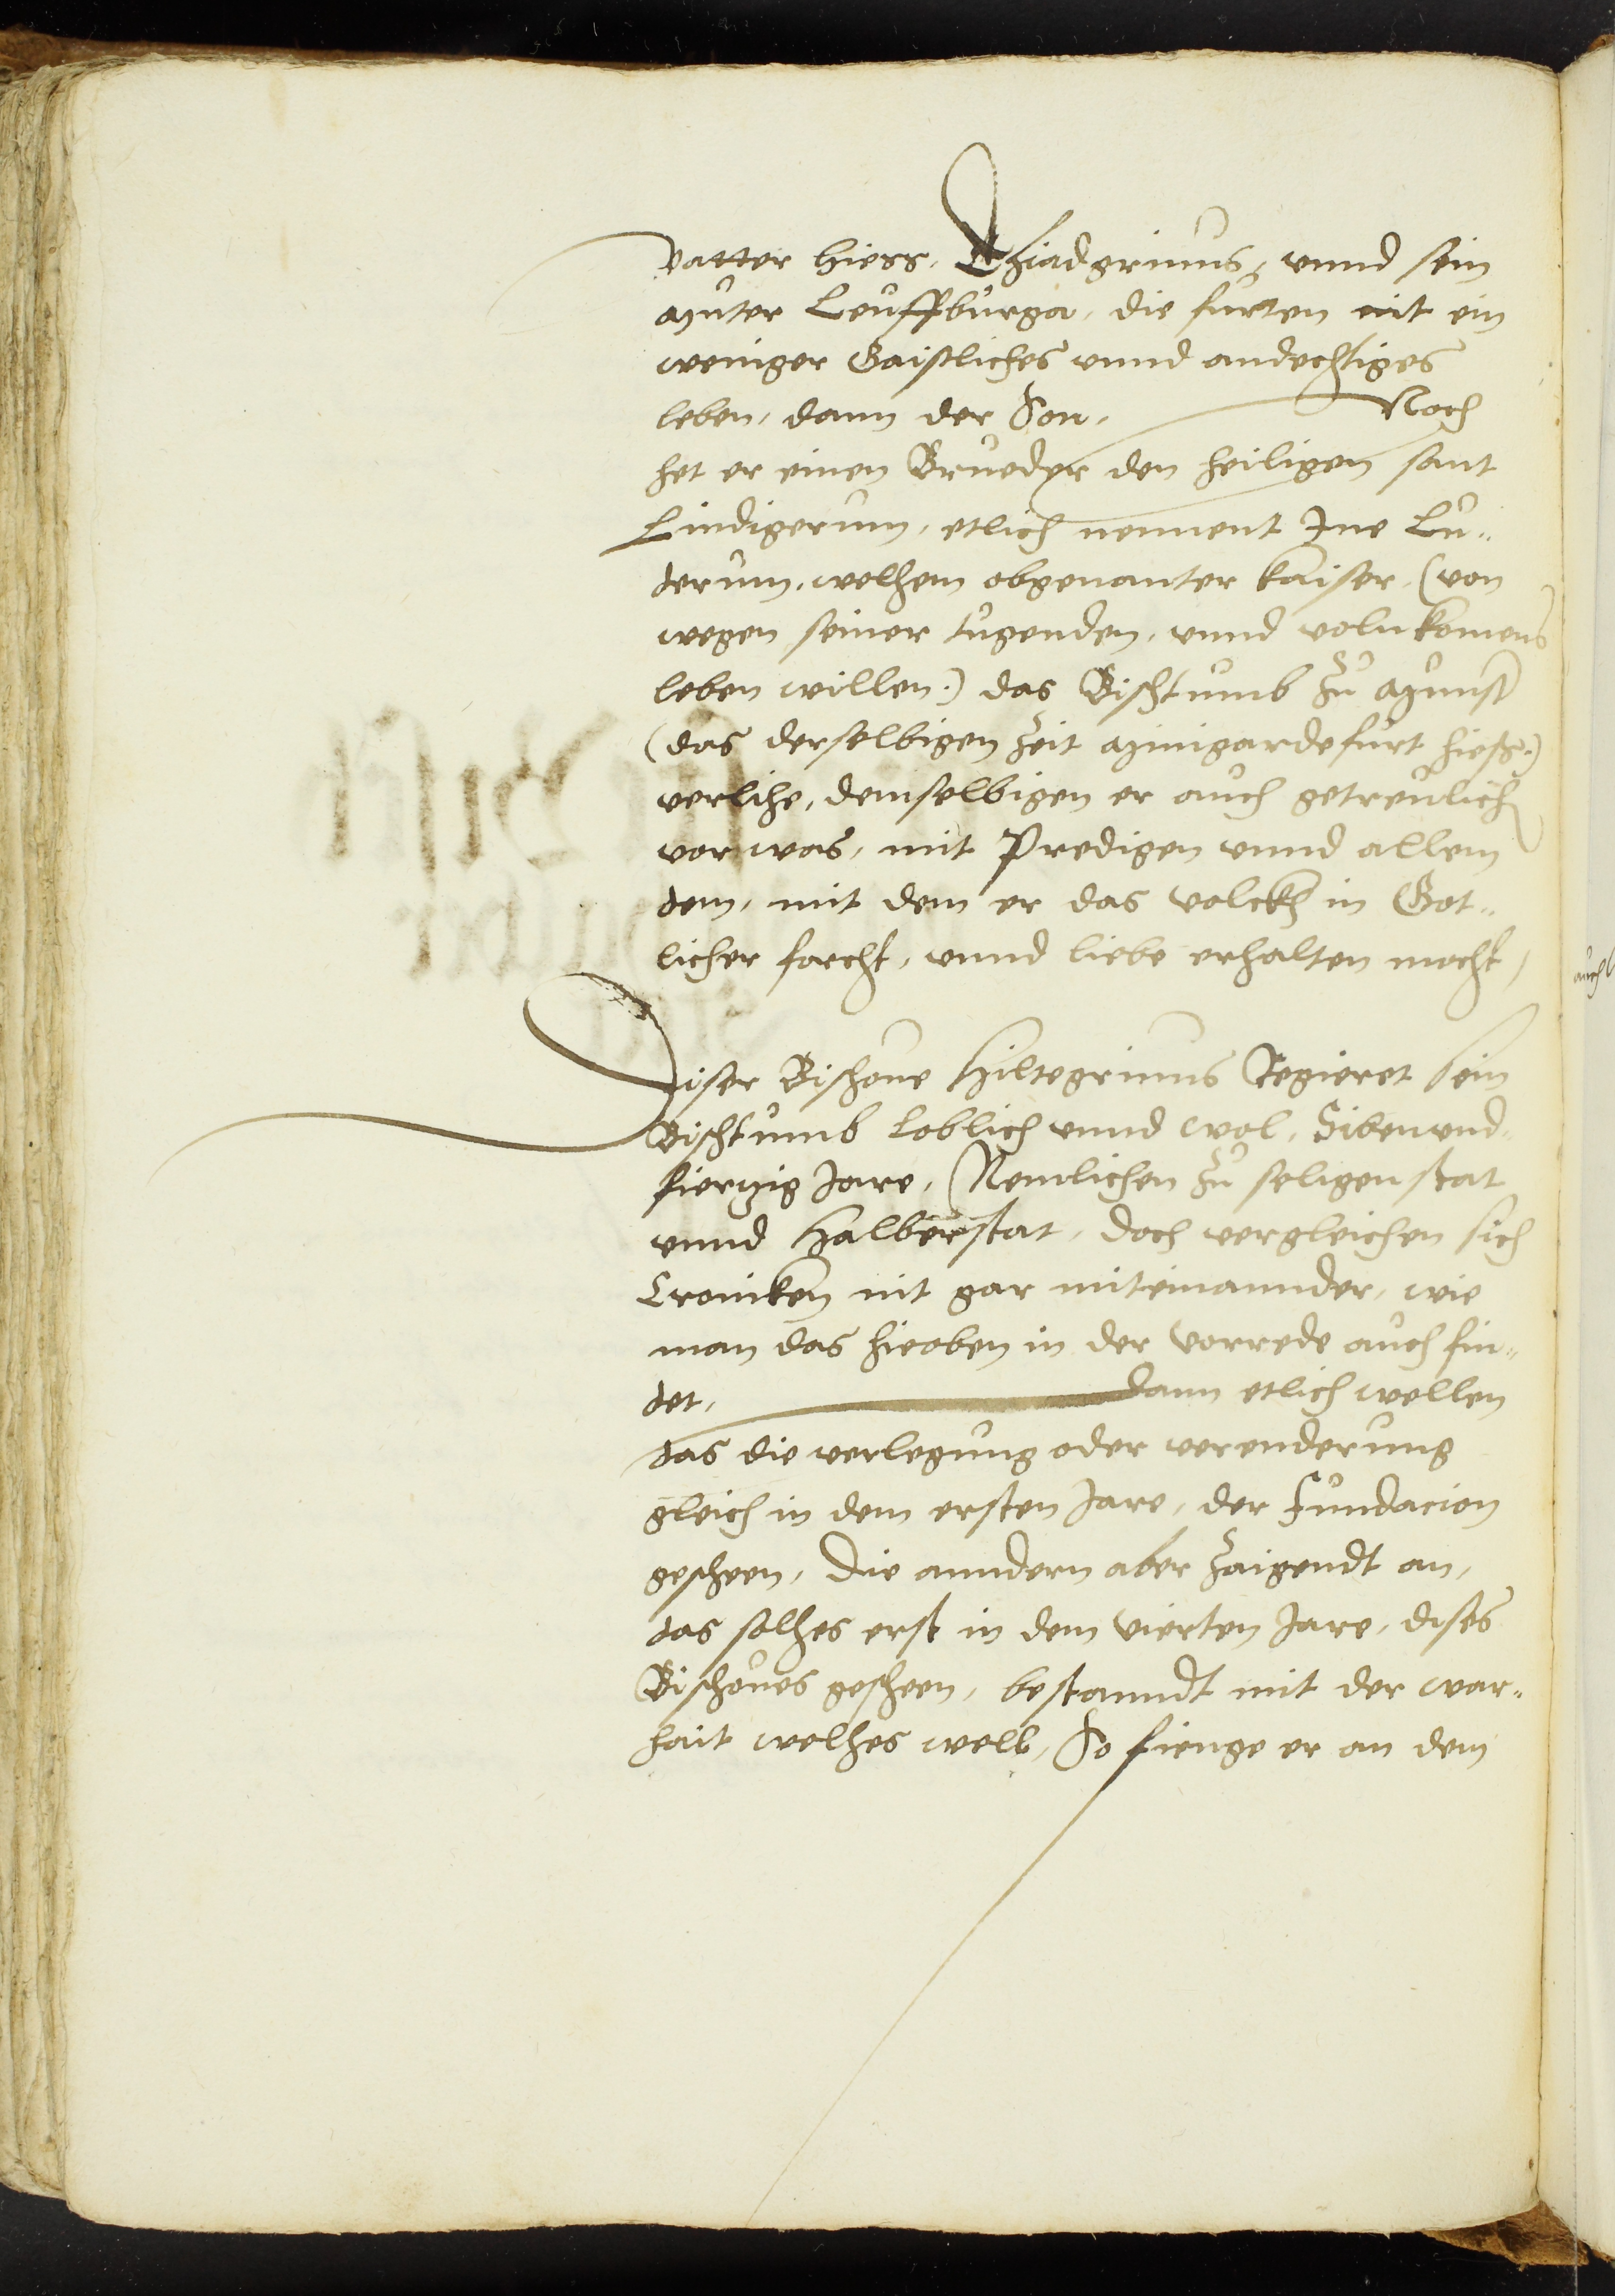 vatter hiess, Thiadgrimus, unnd sein
Muter Leuffburga, die furten nit ein
weniger Gaistliches unnd andechtiges
leben, dann der Son, Noch
het er einen Brueder den heiligen sant
Lindigerum, etlich nennent Ine Lu„
derum, welhem obgenanter kaiser, (von
wegen seiner tugenden, unnd volnkomens
leben willen.) das Bischtumb zu Munst
(das derselbigen zeit Minigardefurt hiess.)
verlihe, demselbigen er auch getreulich
vor was, mit Predigen unnd allem
dem, mit dem er das volckh in Got„
licher forcht, unnd liebe erhalten mocht,
Diser Bischove Hiltegrimus Regieret sein
Bischtumb loblich unnd wol, Sibenund„
fierzig Jare, Nemlichen zu seligenstat
unnd Halberstat, doch vergleichen sich
Croniken nit gar miteinannder, wie
man das hieoben in der vorrede auch fin„
det, dann etlich wellen
das die verlegung oder verenderung
gleich in dem ersten Jare, der Fundacion
gescheen, die anndern aber zaigendt an,
das solhes erst in dem vierten Jare, dises
Bischoves gescheen, bestanndt mit der war„
hait welhes well, So fienge er an dem